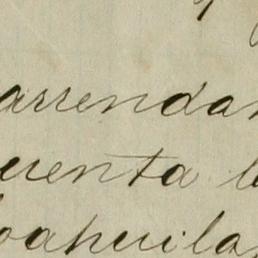 arrendam
uenta l
oahuila